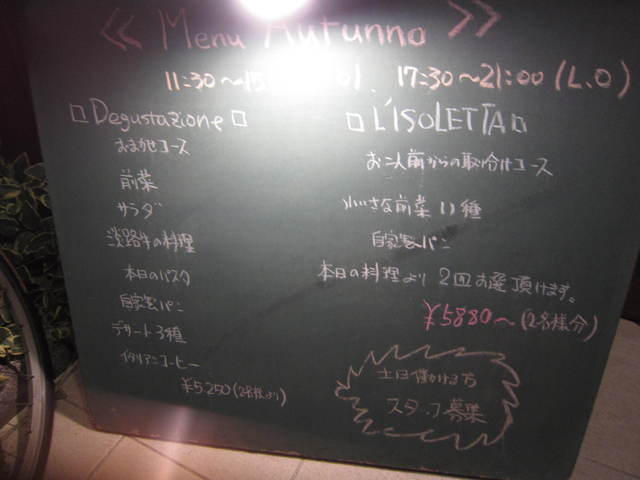 ≪ Menu Autunno ≫
11:30〜15 17:30〜21:00 (L.O)
□ Degustazione □
おまかせコース
前菜
サラダ
淡路牛の料理
本日のパスタ
自家製パン
デザート3種
イタリアンコーヒー
¥5,250 (2名様より)
□ L'ISOLETTA □
お二人前からの取り分けコース
小さな前菜11種
自家製パン
本日の料理より 2皿お選び頂けます。
¥5880〜(2名様分)
土日働ける方
スタッフ募集